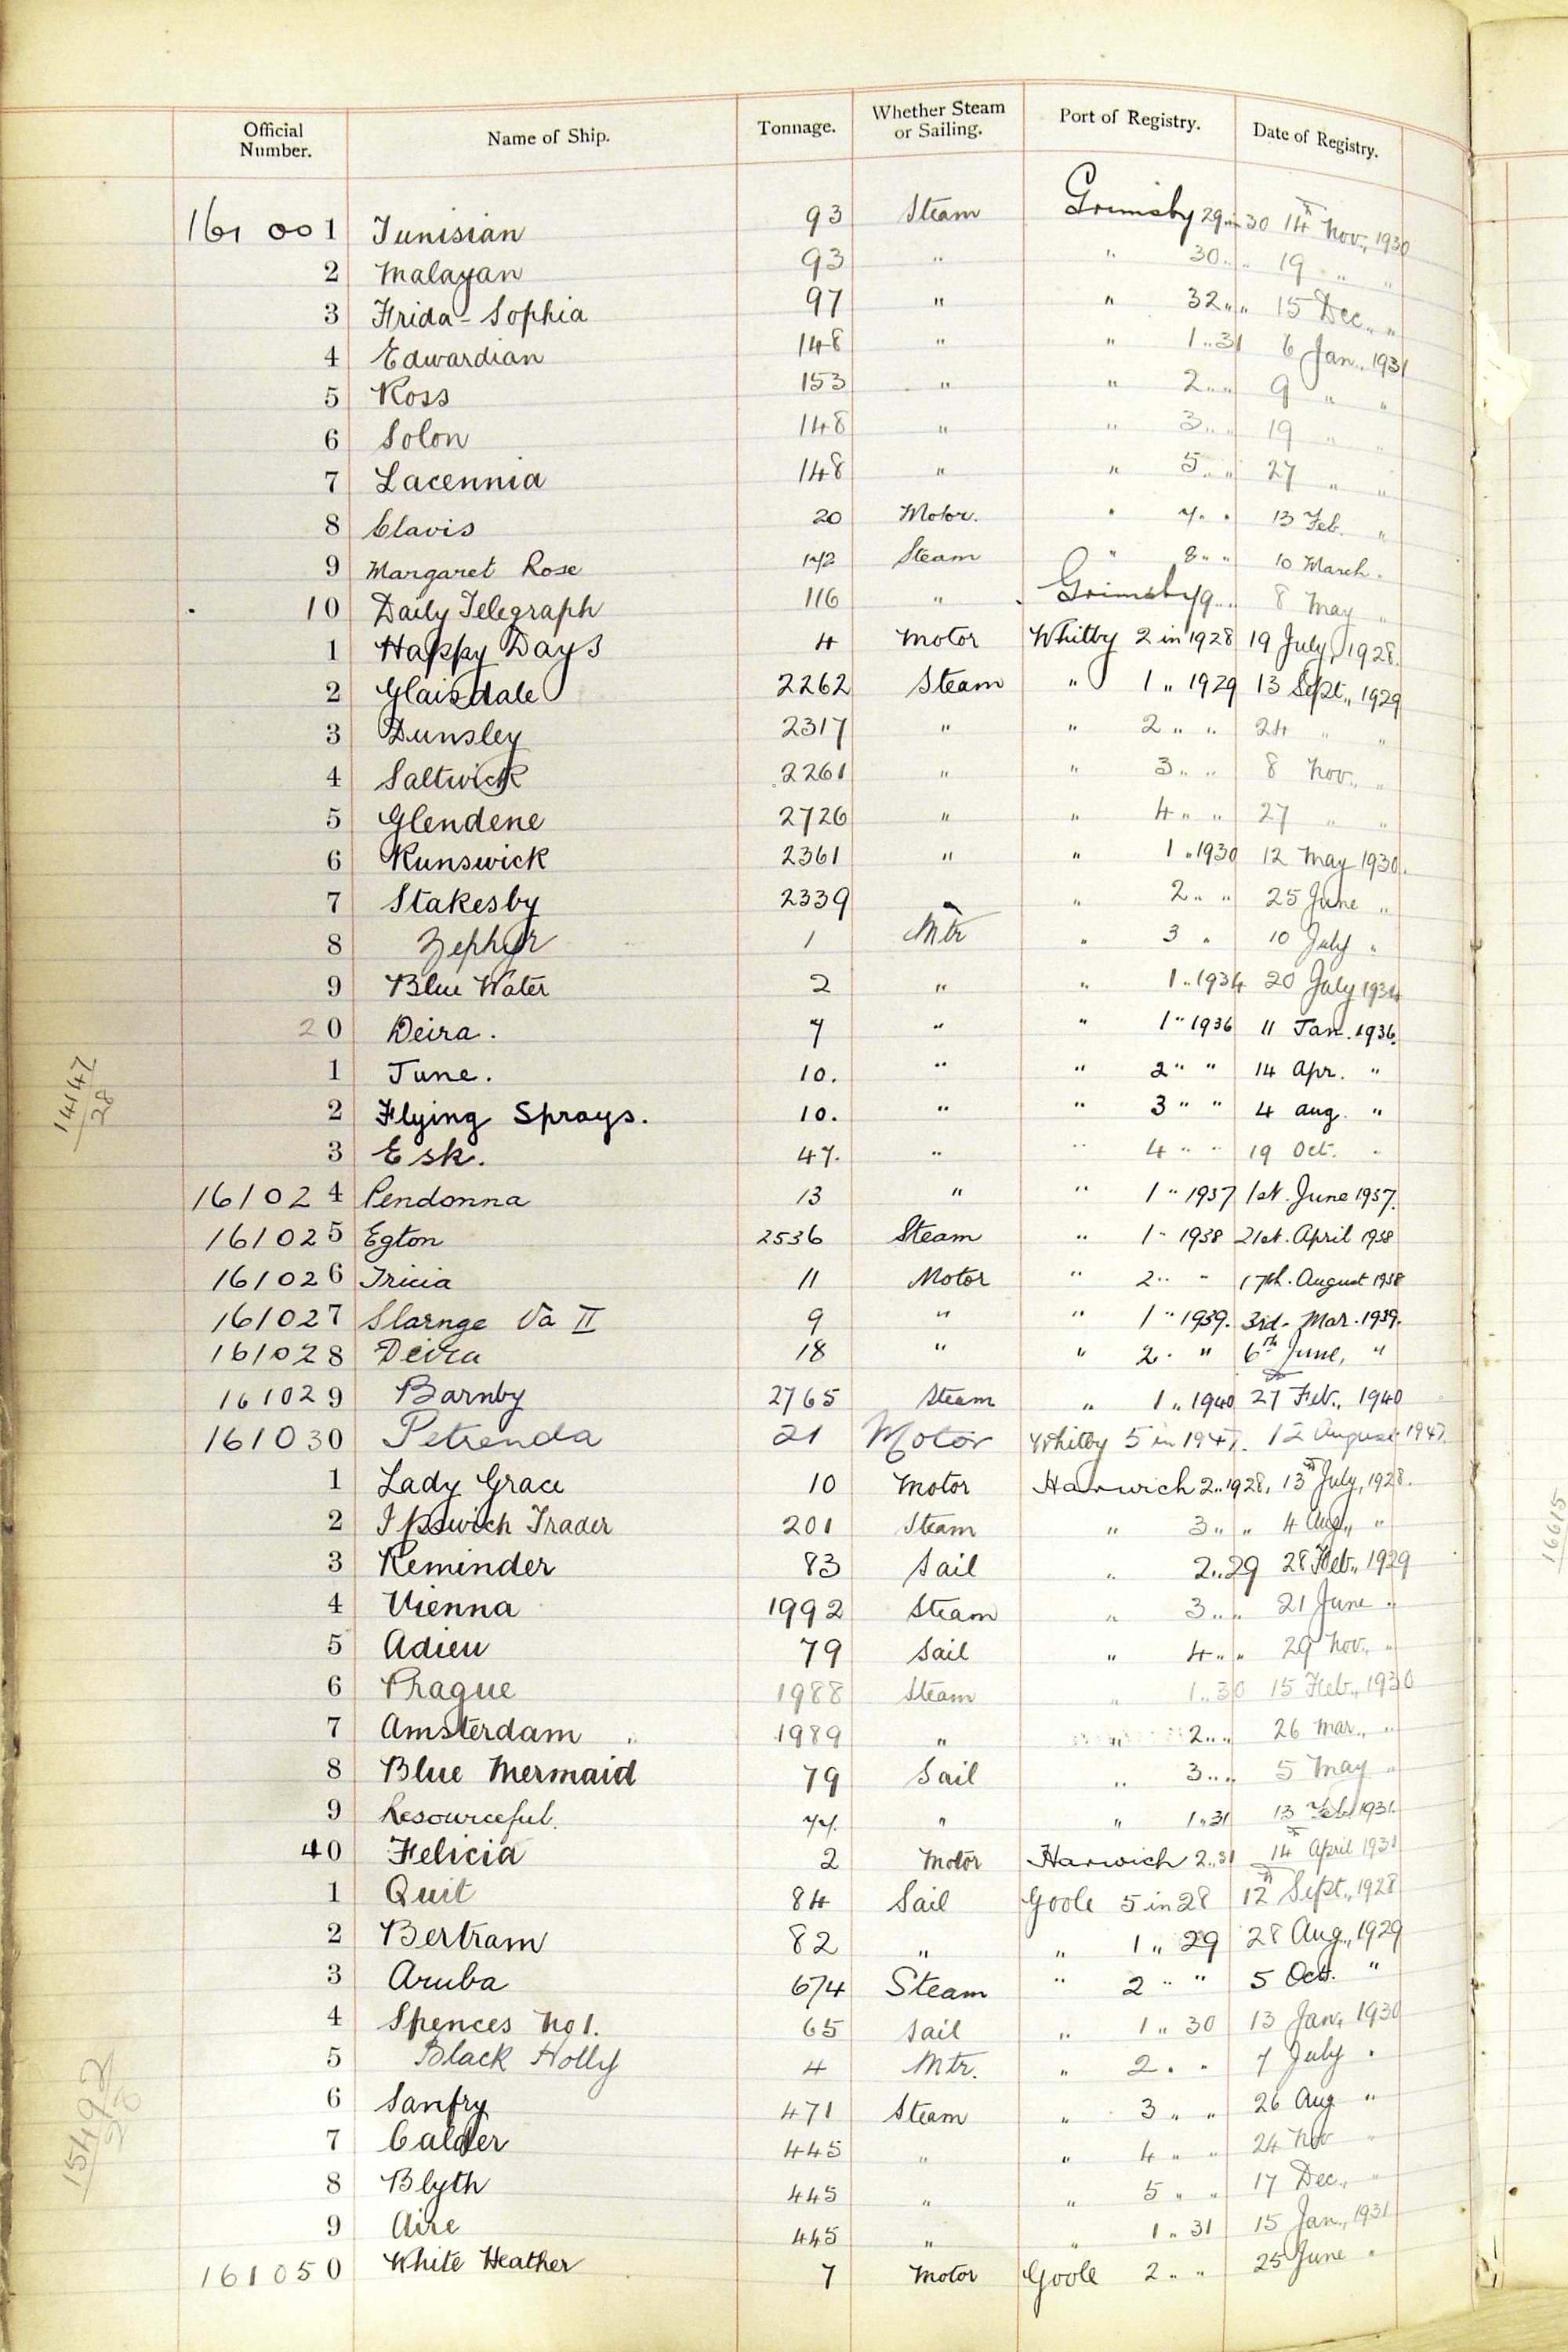 Official Number. Name of Ship. Tonnage. Whether Steam or Sailing. Port of Registry. Date of Registry.
161 001 Tunisian 93 Steam Grimsby 29 in 30 14th Nov., 1930
2 Malayan 93 " " 30 " " 19 " "
3 Frida-Sophia 97 " " 32 " " 15 Dec. " "
4 Edwardian 148 " " 1 " 31 6 Jan., 1931
5 Ross 153 " " 2 " " 9 " "
6 Solon 148 " " 3 " " 19 " "
7 Lacennia 148 " " 5 " " 27 " "
8 Clavis 20 Motor. " 7 " " 13 Feb. "
9 Margaret Rose 142 Steam " 8 " " 10 March "
10 Daily Telegraph 116 " Grimsby 19 " " 8 May "
1 Happy Days 4 Motor Whitby 2 in 1928 19 July, 1928.
2 Glaisdale 2262 Steam " 1 " 1929 13 Sept., 1929
3 Dunsley 2317 " " 2 " " 24 " "
4 Saltwick 2261 " " 3 " " 8 Nov., "
5 Glendene 2726 " " 4 " " 27 " "
6 Runswick 2361 " " 1 " 1930 12 May 1930.
7 Stakesby 2339 " 2 " " 25 June "
8 Zephyr 1 Mtr " 3 " 10 July "
9 Blue Water 2 " " 1 " 1934 20 July 1934
20 Deira. 7 " " 1 " 1936 11 Jan. 1936.
1 June. 10. " " 2 " " 14 Apr. "
2 Flying Sprays. 10. " " 3 " " 4 Aug. "
3 Esk. 47. " " 4 " " 19 Oct. "
161024 Pendonna 13 " " 1 " 1937 1st. June 1937.
161025 Egton 2536 Steam " 1 " 1938 21st. April 1938
161026 Tricia 11 Motor " 2 " " 17th. August 1938
161027 Slarnge Va II 9 " " 1 " 1939. 3rd. Mar. 1939.
161028 Deira 18 " " 2 " " 6th June, "
161029 Barnby 2765 Steam " 1 " 1940 27th Feb., 1940
161030 Petrenda 21 Motor Whitby 5 in 1947. 12 August 1947.
1 Lady Grace 10 Motor Harwich 2 " 1928, 13th July, 1928.
2 Ipswich Trader 201 Steam " 3 " " 4 Aug., "
3 Reminder 83 Sail " 2 " 29 28 Feb., 1929
4 Vienna 1992 Steam " 3 " " 21 June "
5 Adieu 79 Sail " 4 " " 29 Nov., "
6 Prague 1988 Steam " 1 " 30 15 Feb., 1930
7 Amsterdam 1989 " " 2 " " 26 Mar., "
8 Blue Mermaid 79 Sail " 3 " " 5 May "
9 Resourceful. 77. " " 1 " 31 13 Feb. 1931.
40 Felicia 2 Motor Harwich 2 " 31 14th April 1931
1 Quit 84 Sail Goole 5 in 28 12th Sept., 1928
2 Bertram 82 " " 1 " 29 28 Aug., 1929
3 Aruba 674 Steam " 2 " " 5 Oct. "
4 Spences No 1. 65 Sail " 1 " 30 13 Jan., 1930
5 Black Holly 4 Mtr. " 2 " " 7 July "
6 Sanfry 471 Steam " 3 " " 26 Aug "
7 Calder 445 " " 4 " " 24 Nov "
8 Blyth 445 " " 5 " " 17 Dec., "
9 Aire 445 " " 1 " 31 15 Jan., 1931
161050 White Heather 7 Motor Goole 2 " " 25 June "
14147
28
16615